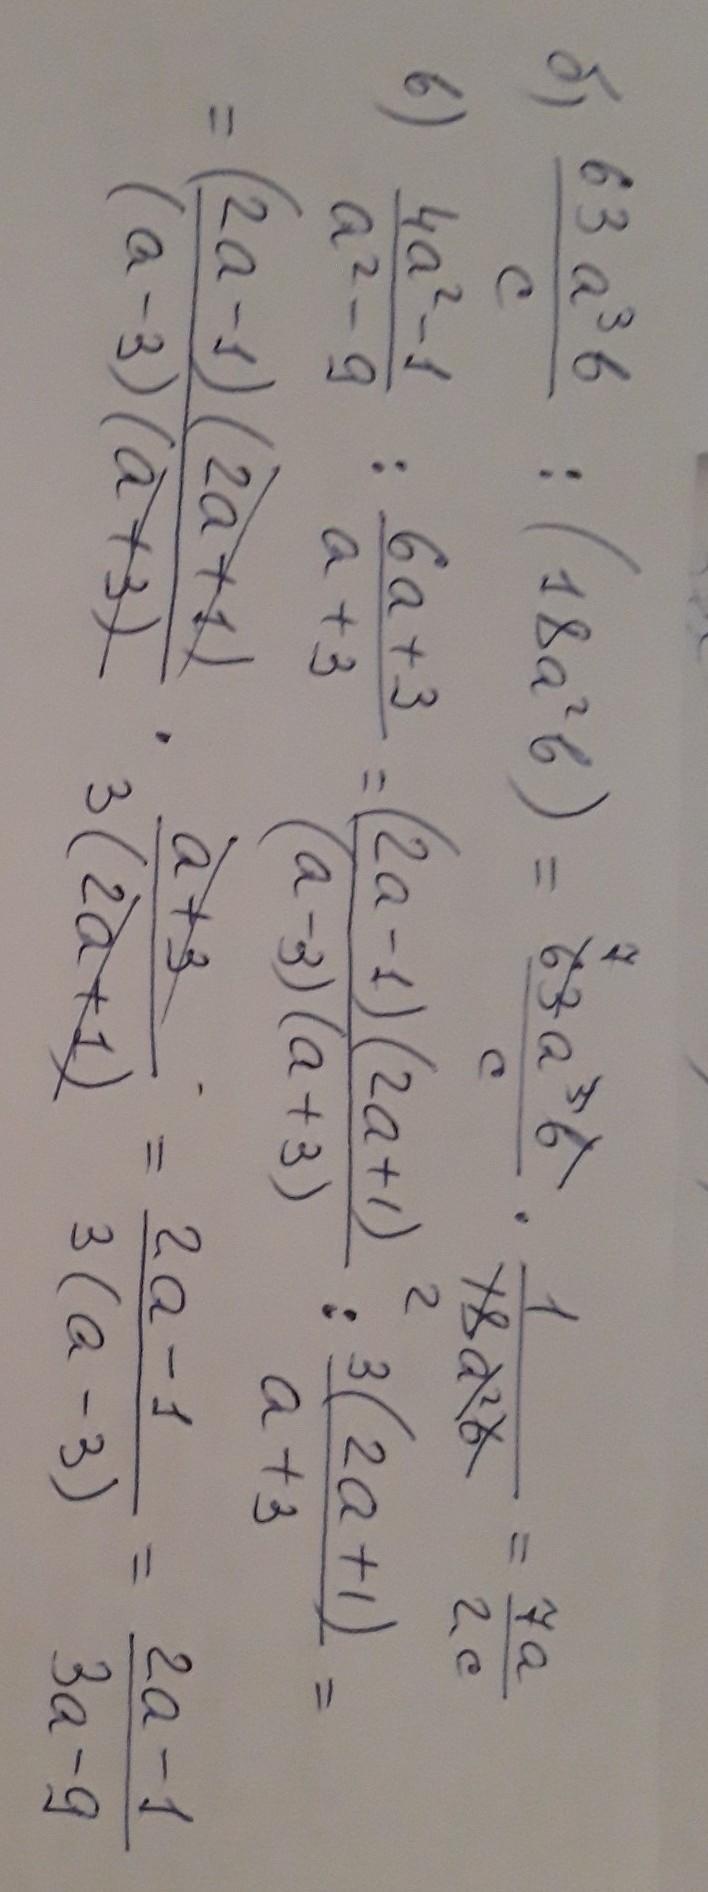 б) 63a³b/c : (18a²b) = ⁷63a³b/c · 1/18a²b ₂ = 7a/2c
в) 4a²-1/a²-9 : 6a+3/a+3 = (2a-1)(2a+1)/(a-3)(a+3) : 3(2a+1)/a+3 =
= (2a-1)(2a+1)/(a-3)(a+3) · a+3/3(2a+1) = 2a-1/3(a-3) = 2a-1/3a-9